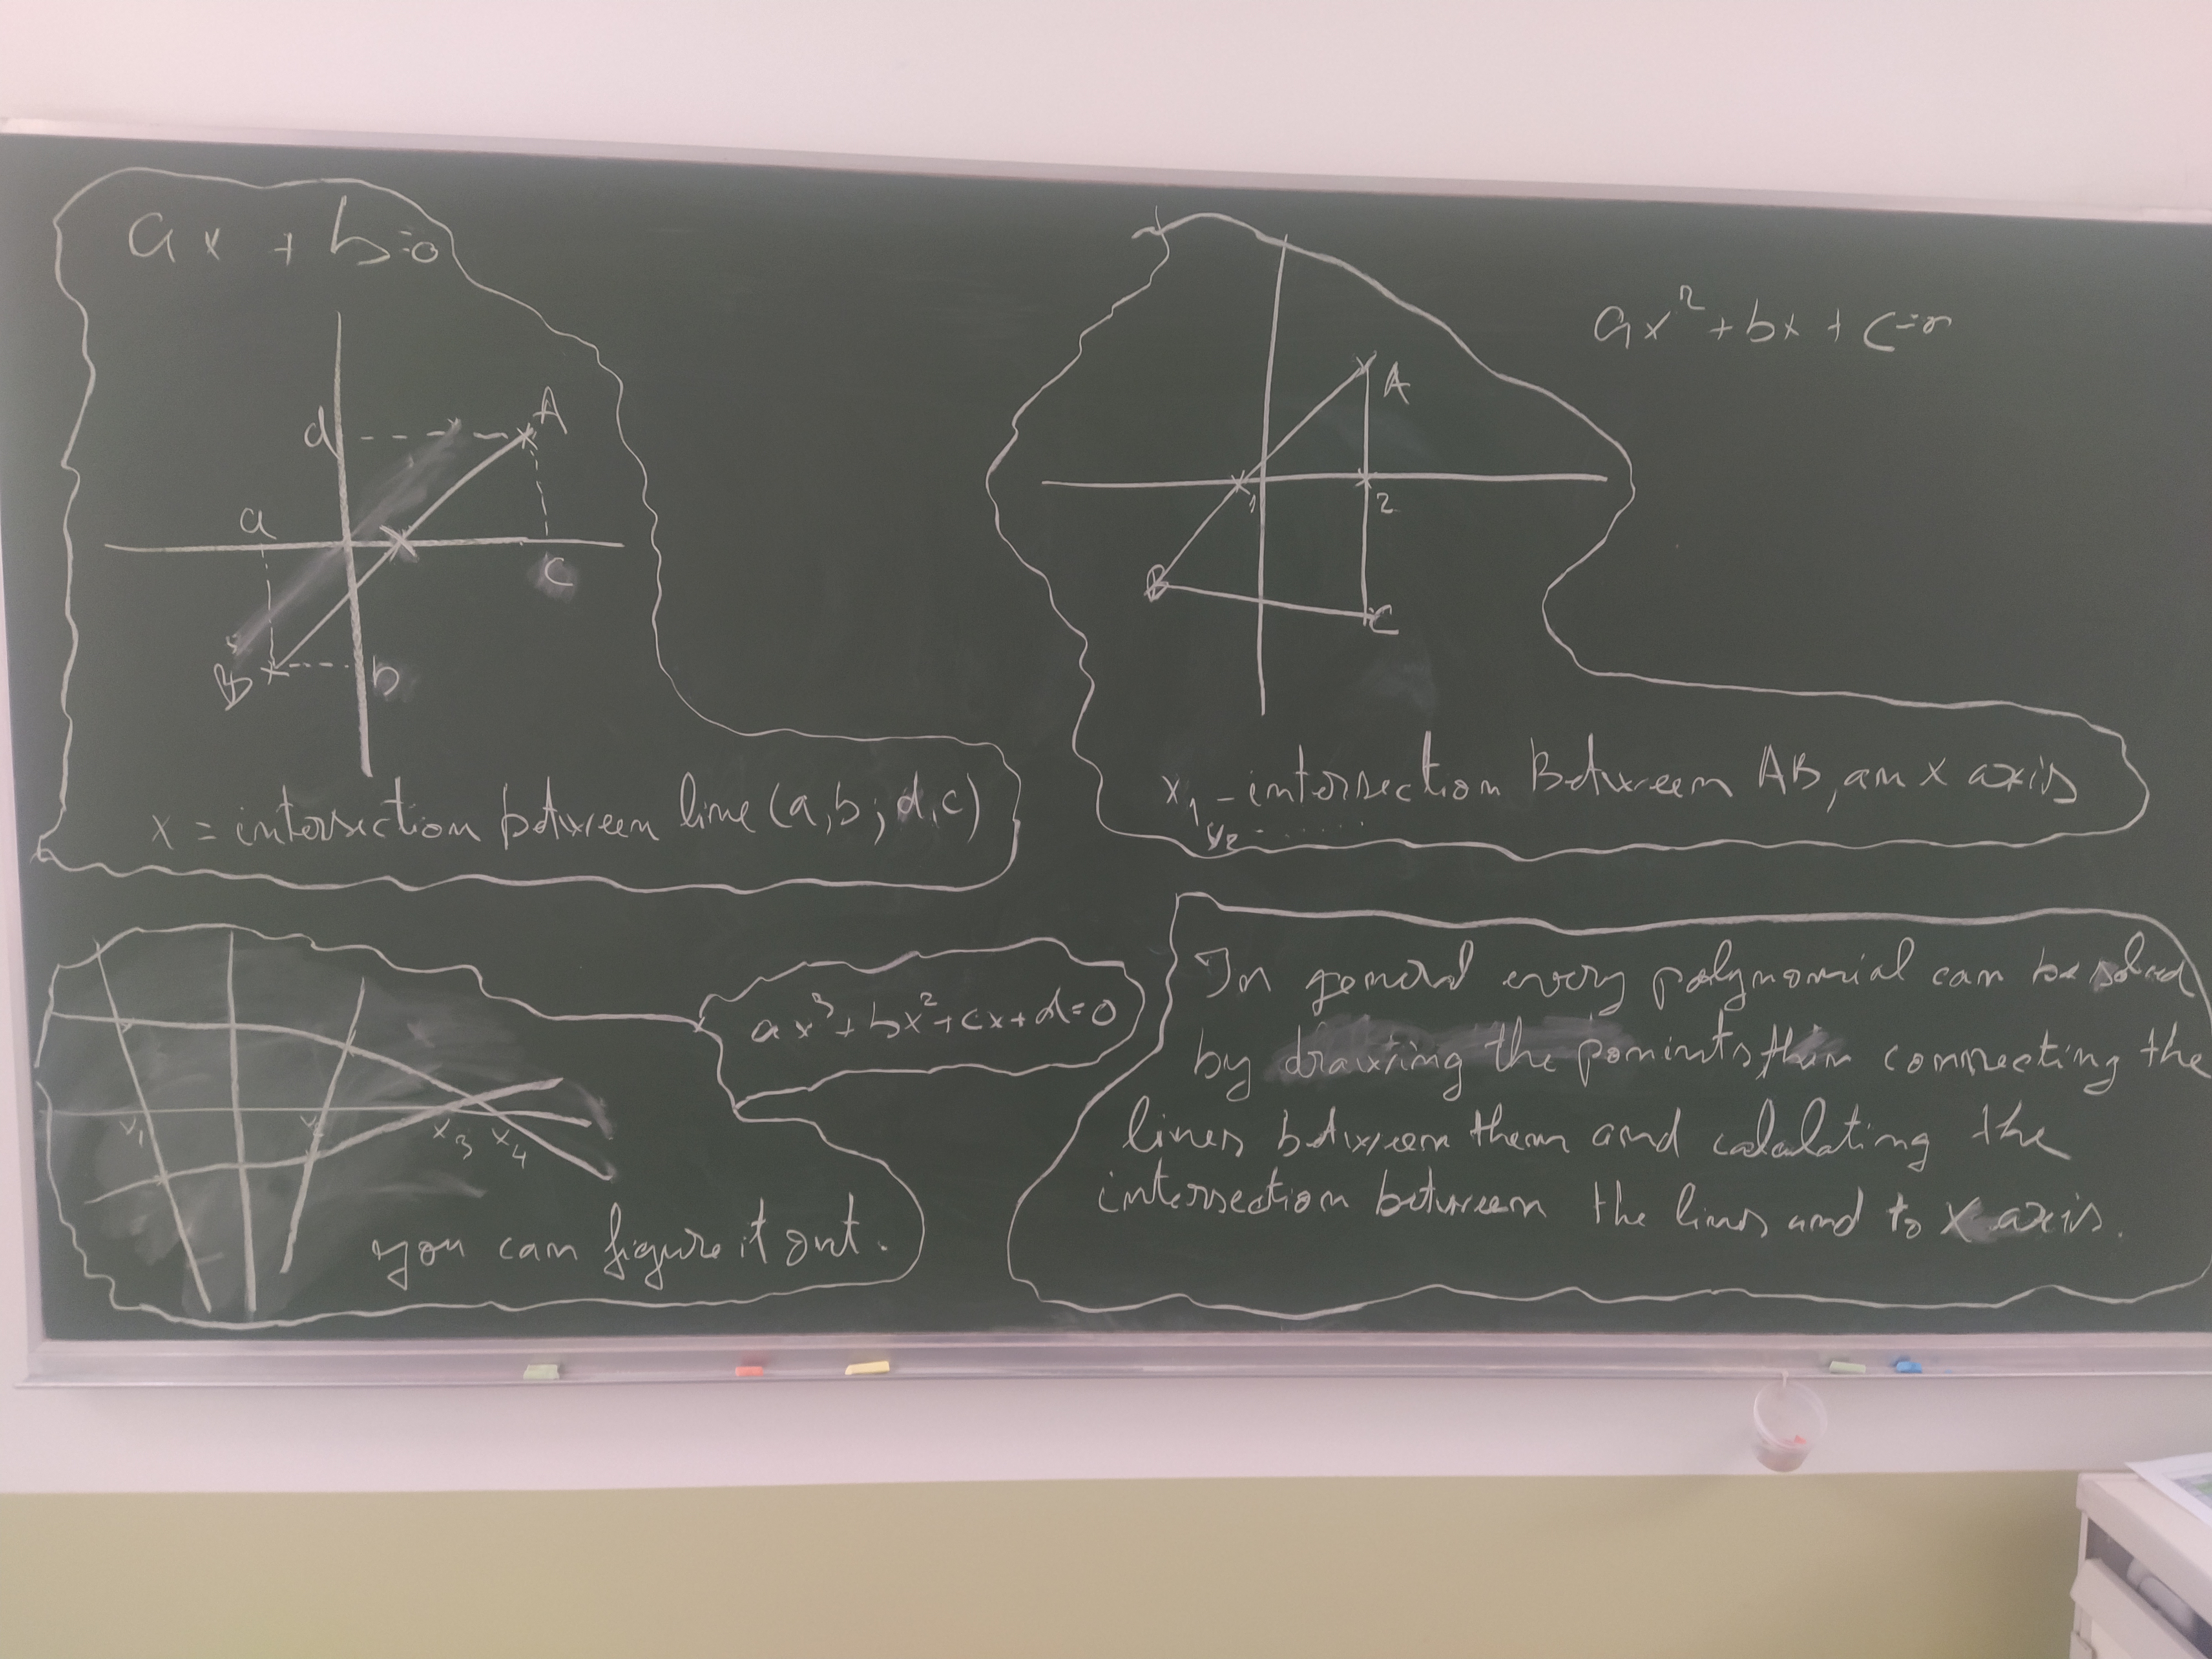 ax + b=0
d
A
a
c
B
b
x = intersection between line (a,b; d,c)
ax² + bx + c=0
A
1
2
B
C
x₁ - intersection Between AB, an x axis
x₂ - .......
ax³ + bx² + cx + d=0
x₁
x₃
x₄
you can figure it out.
In general every polynomial can be solved
by drawing the points connecting the
lines between them and calculating the
intersection between the lines and to X axis.